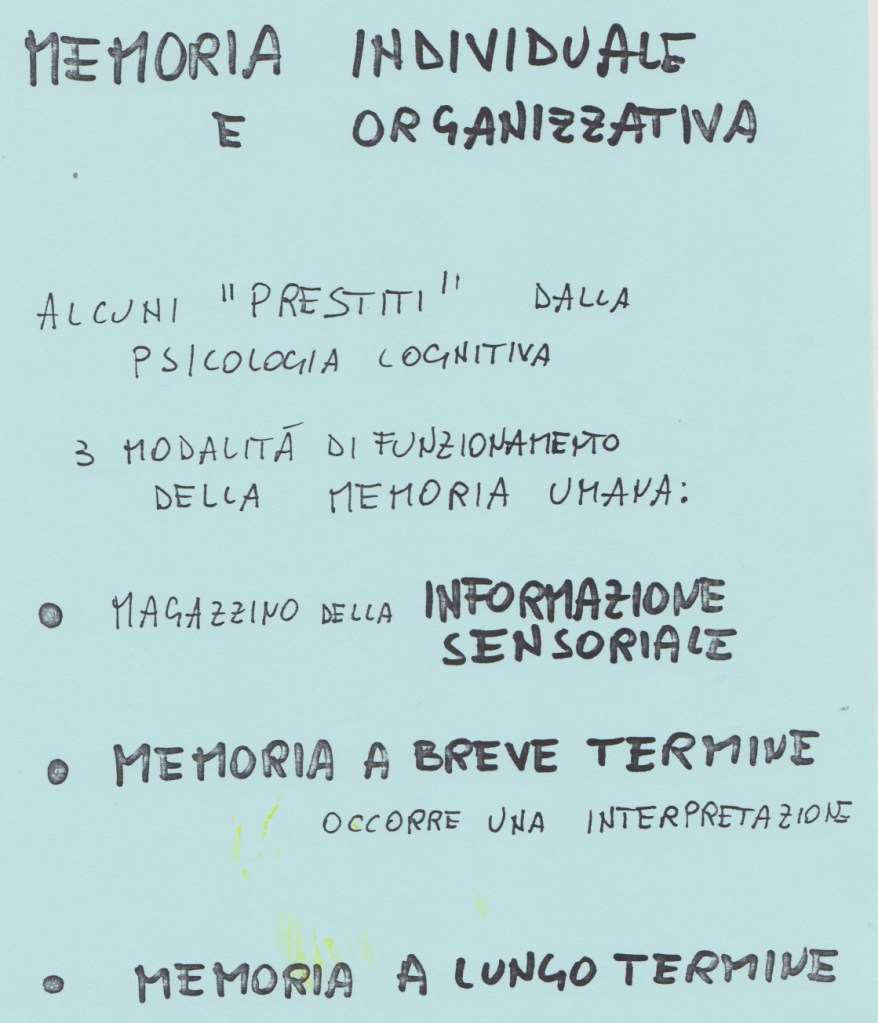 MEMORIA INDIVIDUALE
E ORGANIZZATIVA
ALCUNI "PRESTITI" DALLA
PSICOLOGIA COGNITIVA
3 MODALITÁ DI FUNZIONAMENTO
DELLA MEMORIA UMANA:
• MAGAZZINO DELLA INFORMAZIONE
SENSORIALE
• MEMORIA A BREVE TERMINE
OCCORRE UNA INTERPRETAZIONE
• MEMORIA A LUNGO TERMINE